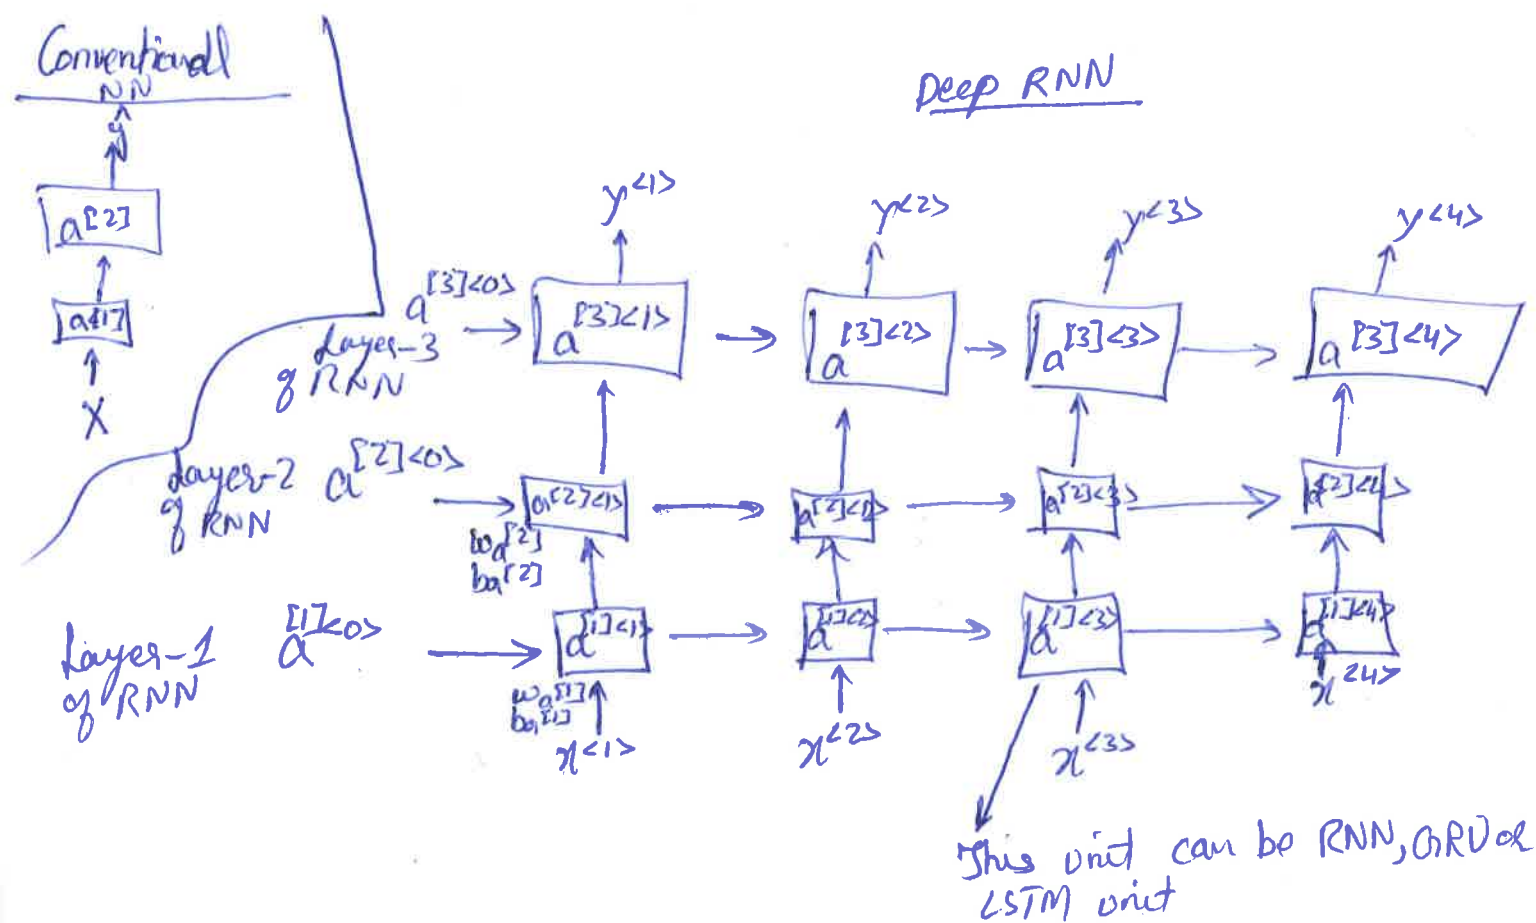 Conventional
NN
Deep RNN
ŷ
a[2]
a[1]
X
y<1>
y<2>
y<3>
y<4>
Layer-3
of RNN
a[3]<0>
a[3]<1>
a[3]<2>
a[3]<3>
a[3]<4>
Layer-2
of RNN
a[2]<0>
a[2]<1>
a[2]<2>
a[2]<3>
a[2]<4>
wa[2]
ba[2]
Layer-1
of RNN
a[1]<0>
a[1]<1>
a[1]<2>
a[1]<3>
a[1]<4>
wa[1]
ba[1]
x<1>
x<2>
x<3>
x<4>
This unit can be RNN, GRU or
LSTM unit